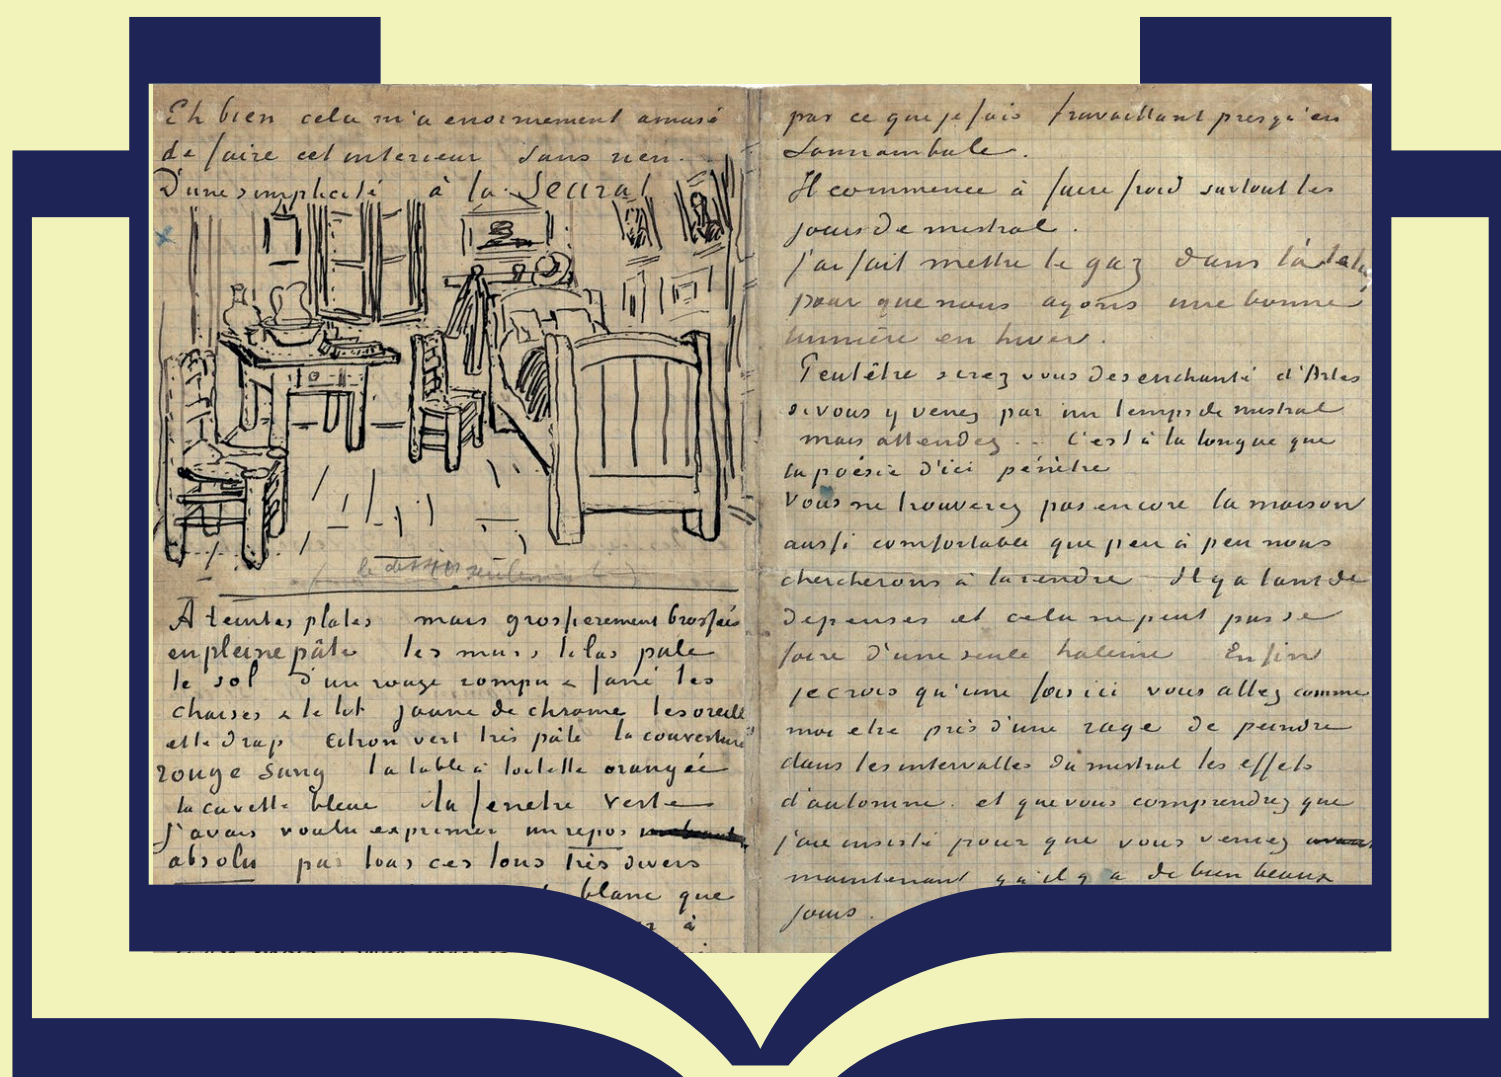 Eh bien cela m'a enormement amusé
de faire cet interieur sans rien.
D'une simplicité à la Seurat
(le dessin seulement)
A teintes plates mais grossierement brossées
en pleine pâte les murs lilas pale
le sol d'un rouge rompu & fané les
chaises & le lit jaune de chrome les oreill
et le drap citron vert très pâle la couverture
rouge sang la table à toilette orangée
la cuvette bleue la fenetre verte
j'avais voulu exprimer un repos
absolu par tous ces tons très divers
blanc que
à
par ce que je fais travaillant presqu'en
somnambule.
Il commence à faire froid surtout les
jours de mistral.
j'ai fait mettre le gaz dans
pour que nous ayons une bonne
lumière en hiver.
Peutêtre serez vous desenchanté d'Arles
si vous y venez par un temps de mistral
mais attendez .. C'est à la longue que
la poésie d'ici pénètre
Vous ne trouverez pas encore la maison
aussi comfortable que peu à peu nous
chercherons à la rendre Il y a tant de
depenses et cela ne peut pas se
faire d'une seule haleine Enfin
je crois qu'une fois ici vous allez comme
moi etre pris d'une rage de peindre
dans les intervalles du mistral les effets
d'automne. et que vous comprendrez que
j'aie insisté pour que vous veniez
maintenant qu'il y a de bien beaux
jours.